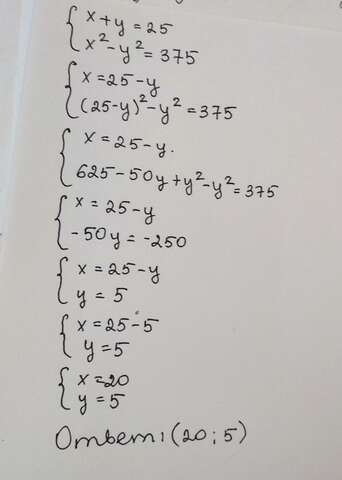 x + y = 25
x² - y² = 375
x = 25 - y
(25 - y)² - y² = 375
x = 25 - y.
625 - 50y + y² - y² = 375
x = 25 - y
-50y = -250
x = 25 - y
y = 5
x = 25 - 5
y = 5
x = 20
y = 5
Ответ: (20; 5)